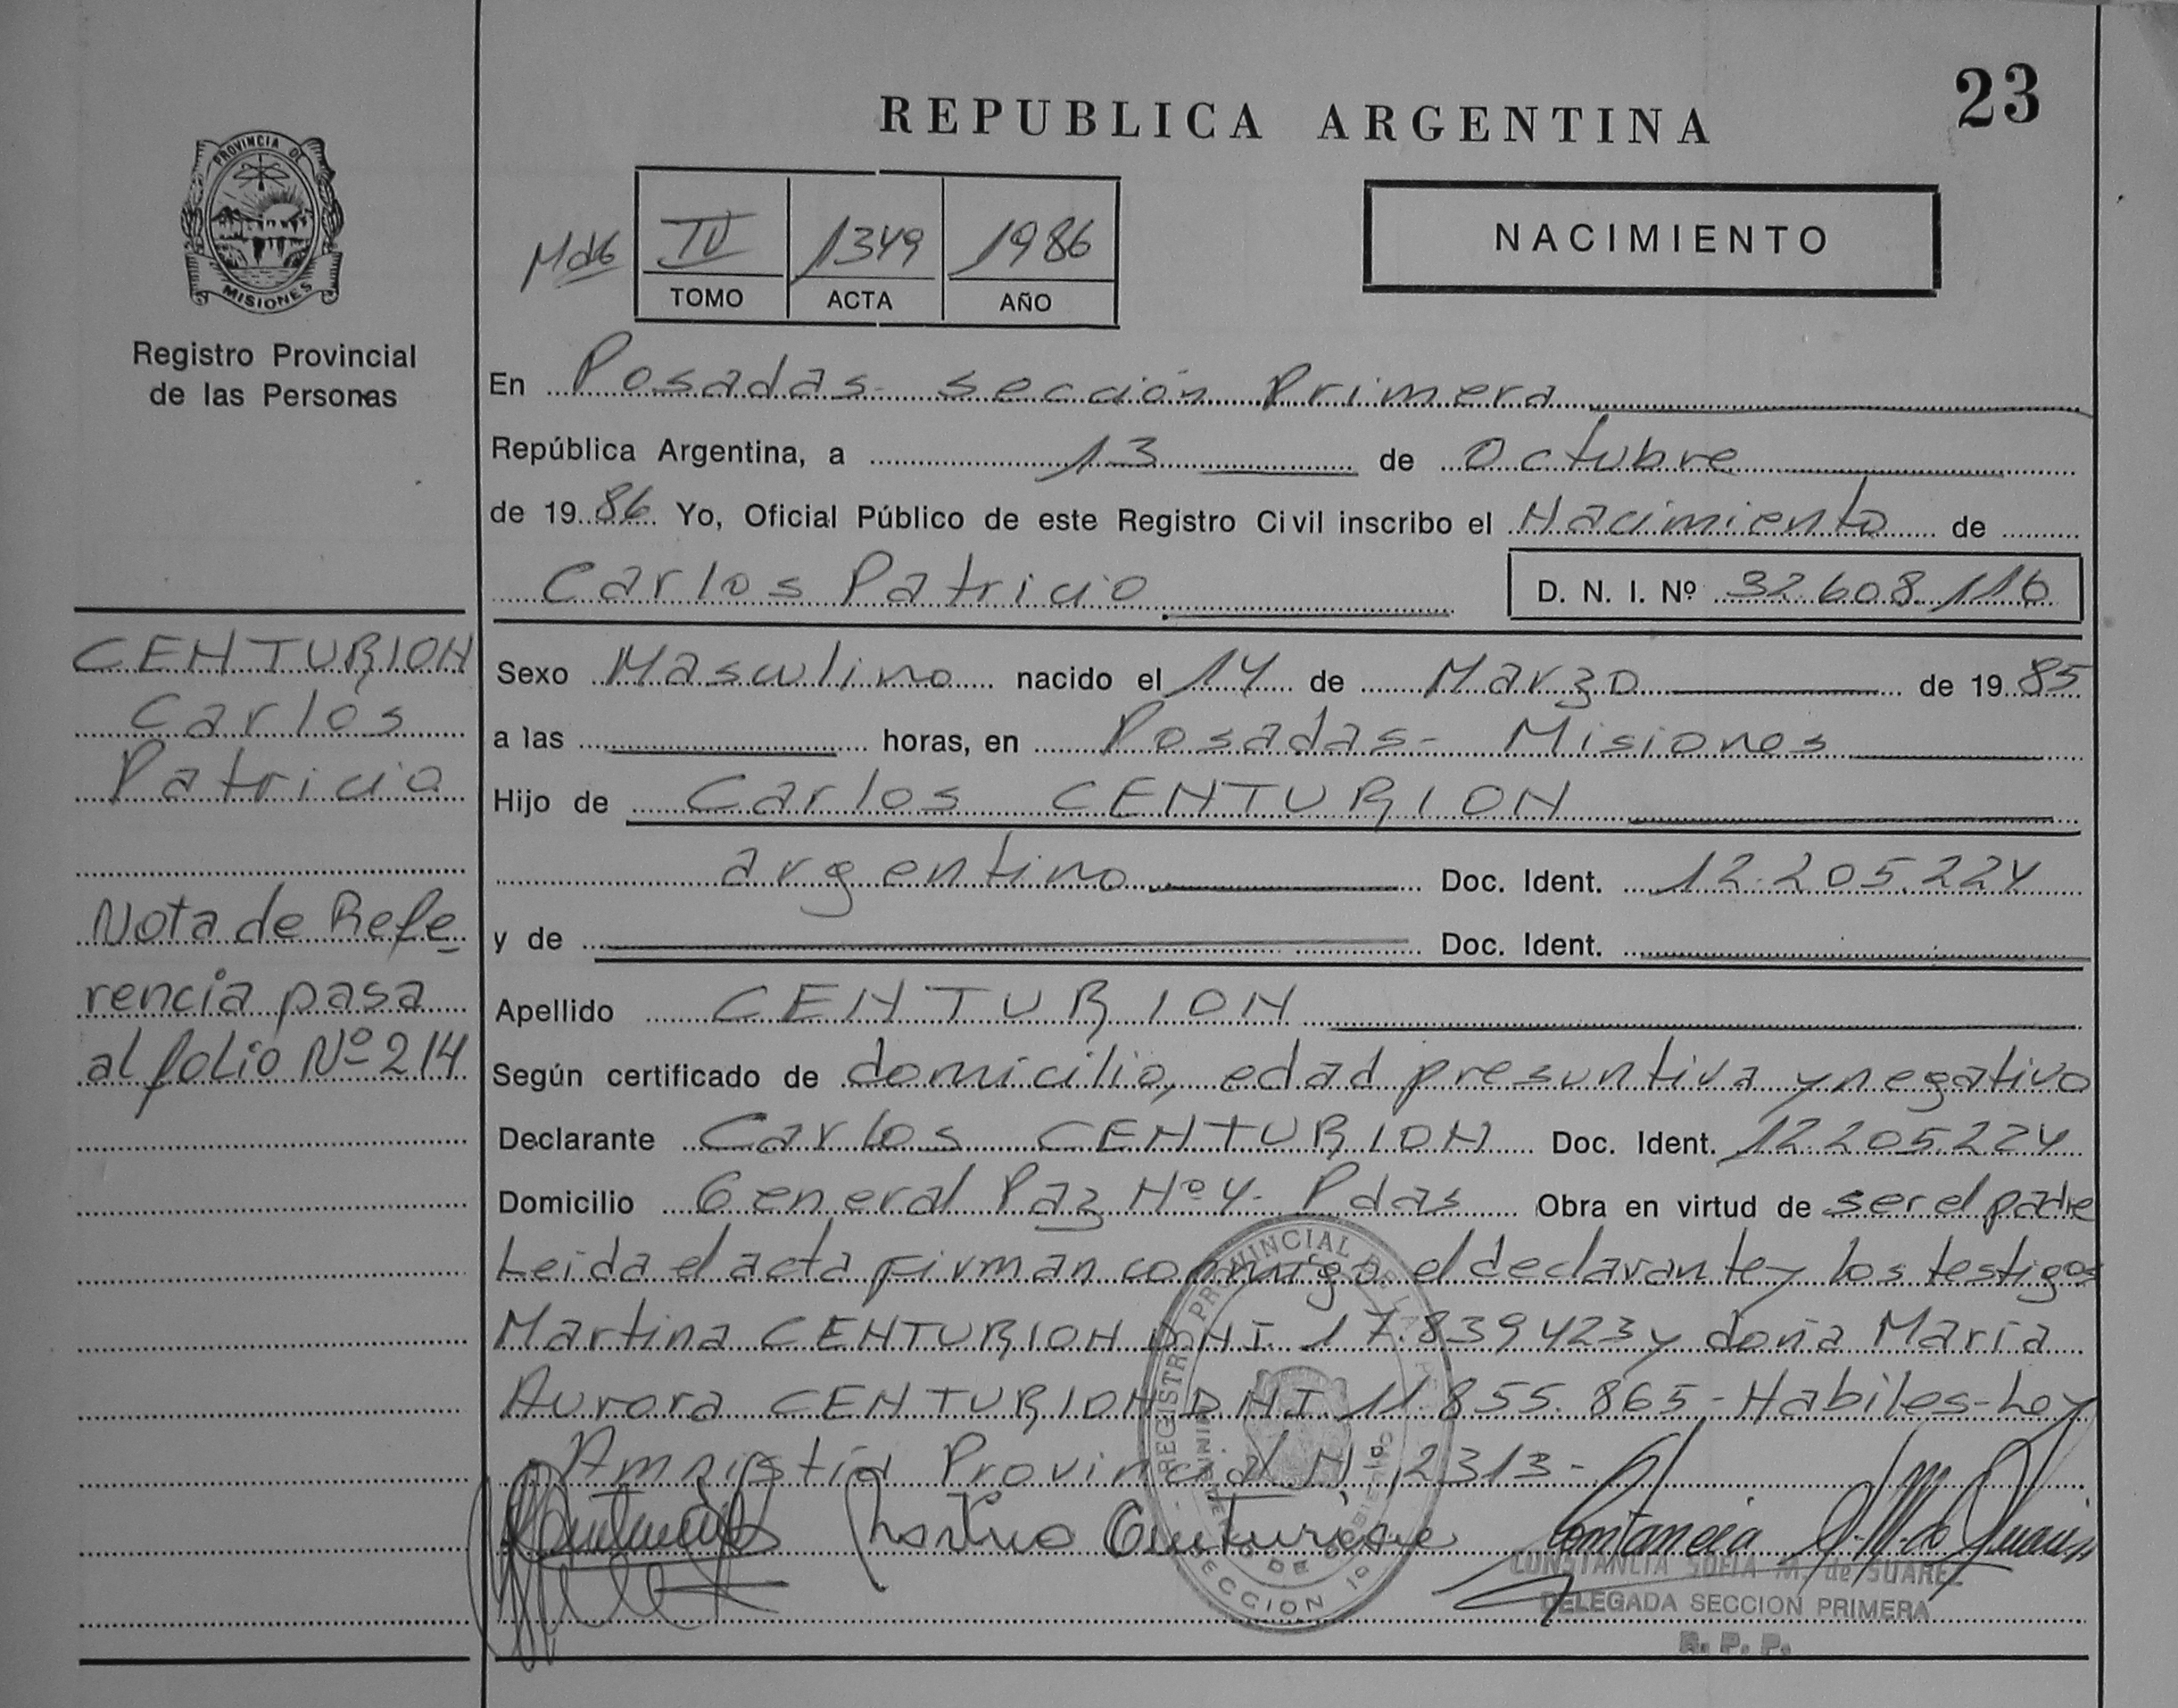 23
REPUBLICA ARGENTINA
PROVINCIA DE
MISIONES
Registro Provincial
de las Personas
IV 1349 1986
TOMO ACTA AÑO
NACIMIENTO
En Posadas - sección Primera
República Argentina, a 13 de Octubre
de 1986 Yo, Oficial Público de este Registro Civil inscribo el Nacimiento de
Carlos Patricio D. N. I. Nº 32.608.116
CENTURION
Carlos
Patricio
Nota de Refe-
rencia pasa
al folio Nº 214
Sexo Masculino nacido el 14 de Marzo de 1985
a las horas, en Posadas - Misiones
Hijo de Carlos CENTURION
argentino Doc. Ident. 12.205.224
y de Doc. Ident.
Apellido CENTURION
Según certificado de domicilio, edad presuntiva y negativo
Declarante Carlos CENTURION Doc. Ident. 12.205.224
Domicilio General Paz Nº 4 - Pdas Obra en virtud de ser el padre
Leida el acta firman conmigo el declarante y los testigos
Martina CENTURION D.N.I. 17.839423 y doña María
Aurora CENTURION D.N.I. 11.855.865 - Habiles - Ley
Amnistia Provincial Nº 2313 -
Centurion
REGISTRO PROVINCIAL DE LAS
SECCION 1º
CONSTANCIA SOFIA M. de SUAREZ
DELEGADA SECCION PRIMERA
R. P. P.